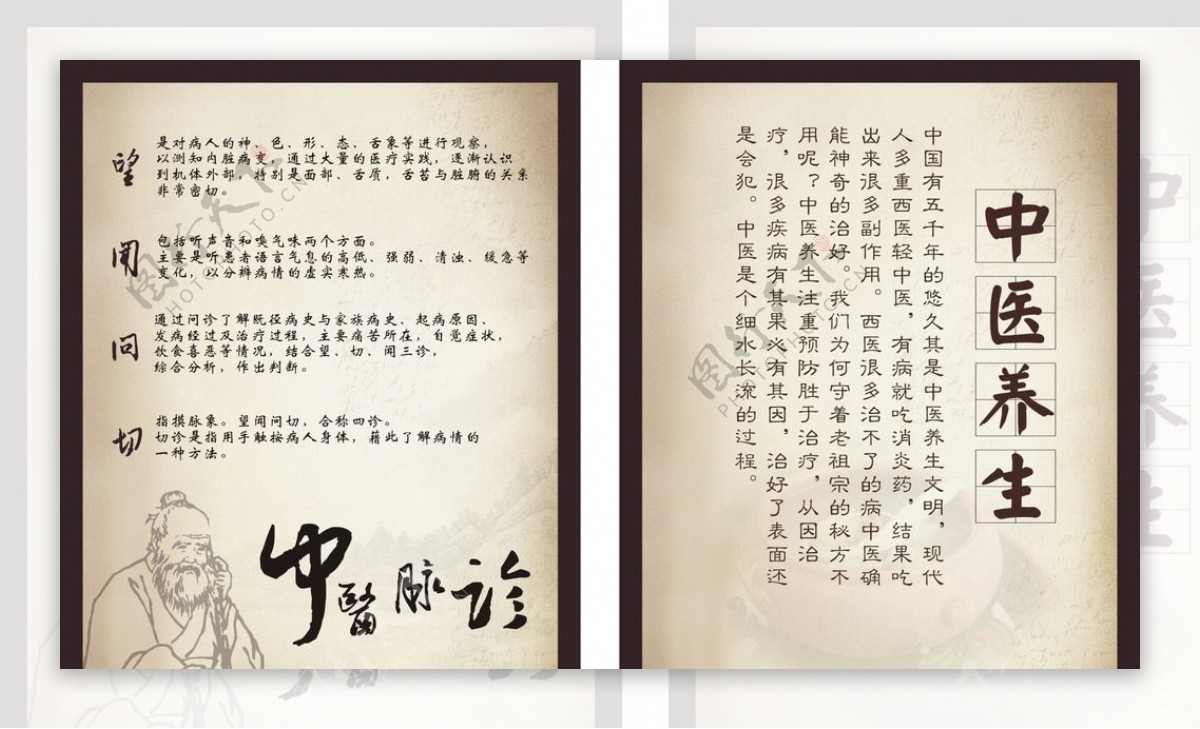 望
是对病人的神、色、形、态、舌象等进行观察，
以测知内脏病变，通过大量的医疗实践，逐渐认识
到机体外部，特别是面部、舌质，舌苔与脏腑的关系
非常密切。
闻
包括听声音和嗅气味两个方面。
主要是听患者语言气息的高低、强弱、清浊、缓急等
变化，以分辨病情的虚实寒热。
问
通过问诊了解既径病史与家族病史、起病原因、
发病经过及治疗过程，主要痛苦所在，自觉症状，
饮食喜恶等情况，结合望、切、闻三诊，
综合分析，作出判断。
切
指摸脉象。望闻问切，合称四诊。
切诊是指用手触按病人身体，藉此了解病情的
一种方法。
中醫脉诊
中医养生
中国有五千年的悠久其是中医养生文明，现代
人多重西医轻中医，有病就吃消炎药，结果吃
出来很多副作用。西医很多治不了的病中医确
能神奇的治好。我们为何守着老祖宗的秘方不
用呢？中医养生注重预防胜于治疗，从因治
疗，很多疾病有其果必有其因，治好了表面还
是会犯。中医是个细水长流的过程。
图行天下
PHOTOPHOTO.CN
图行天下
PHOTOPHOTO.CN